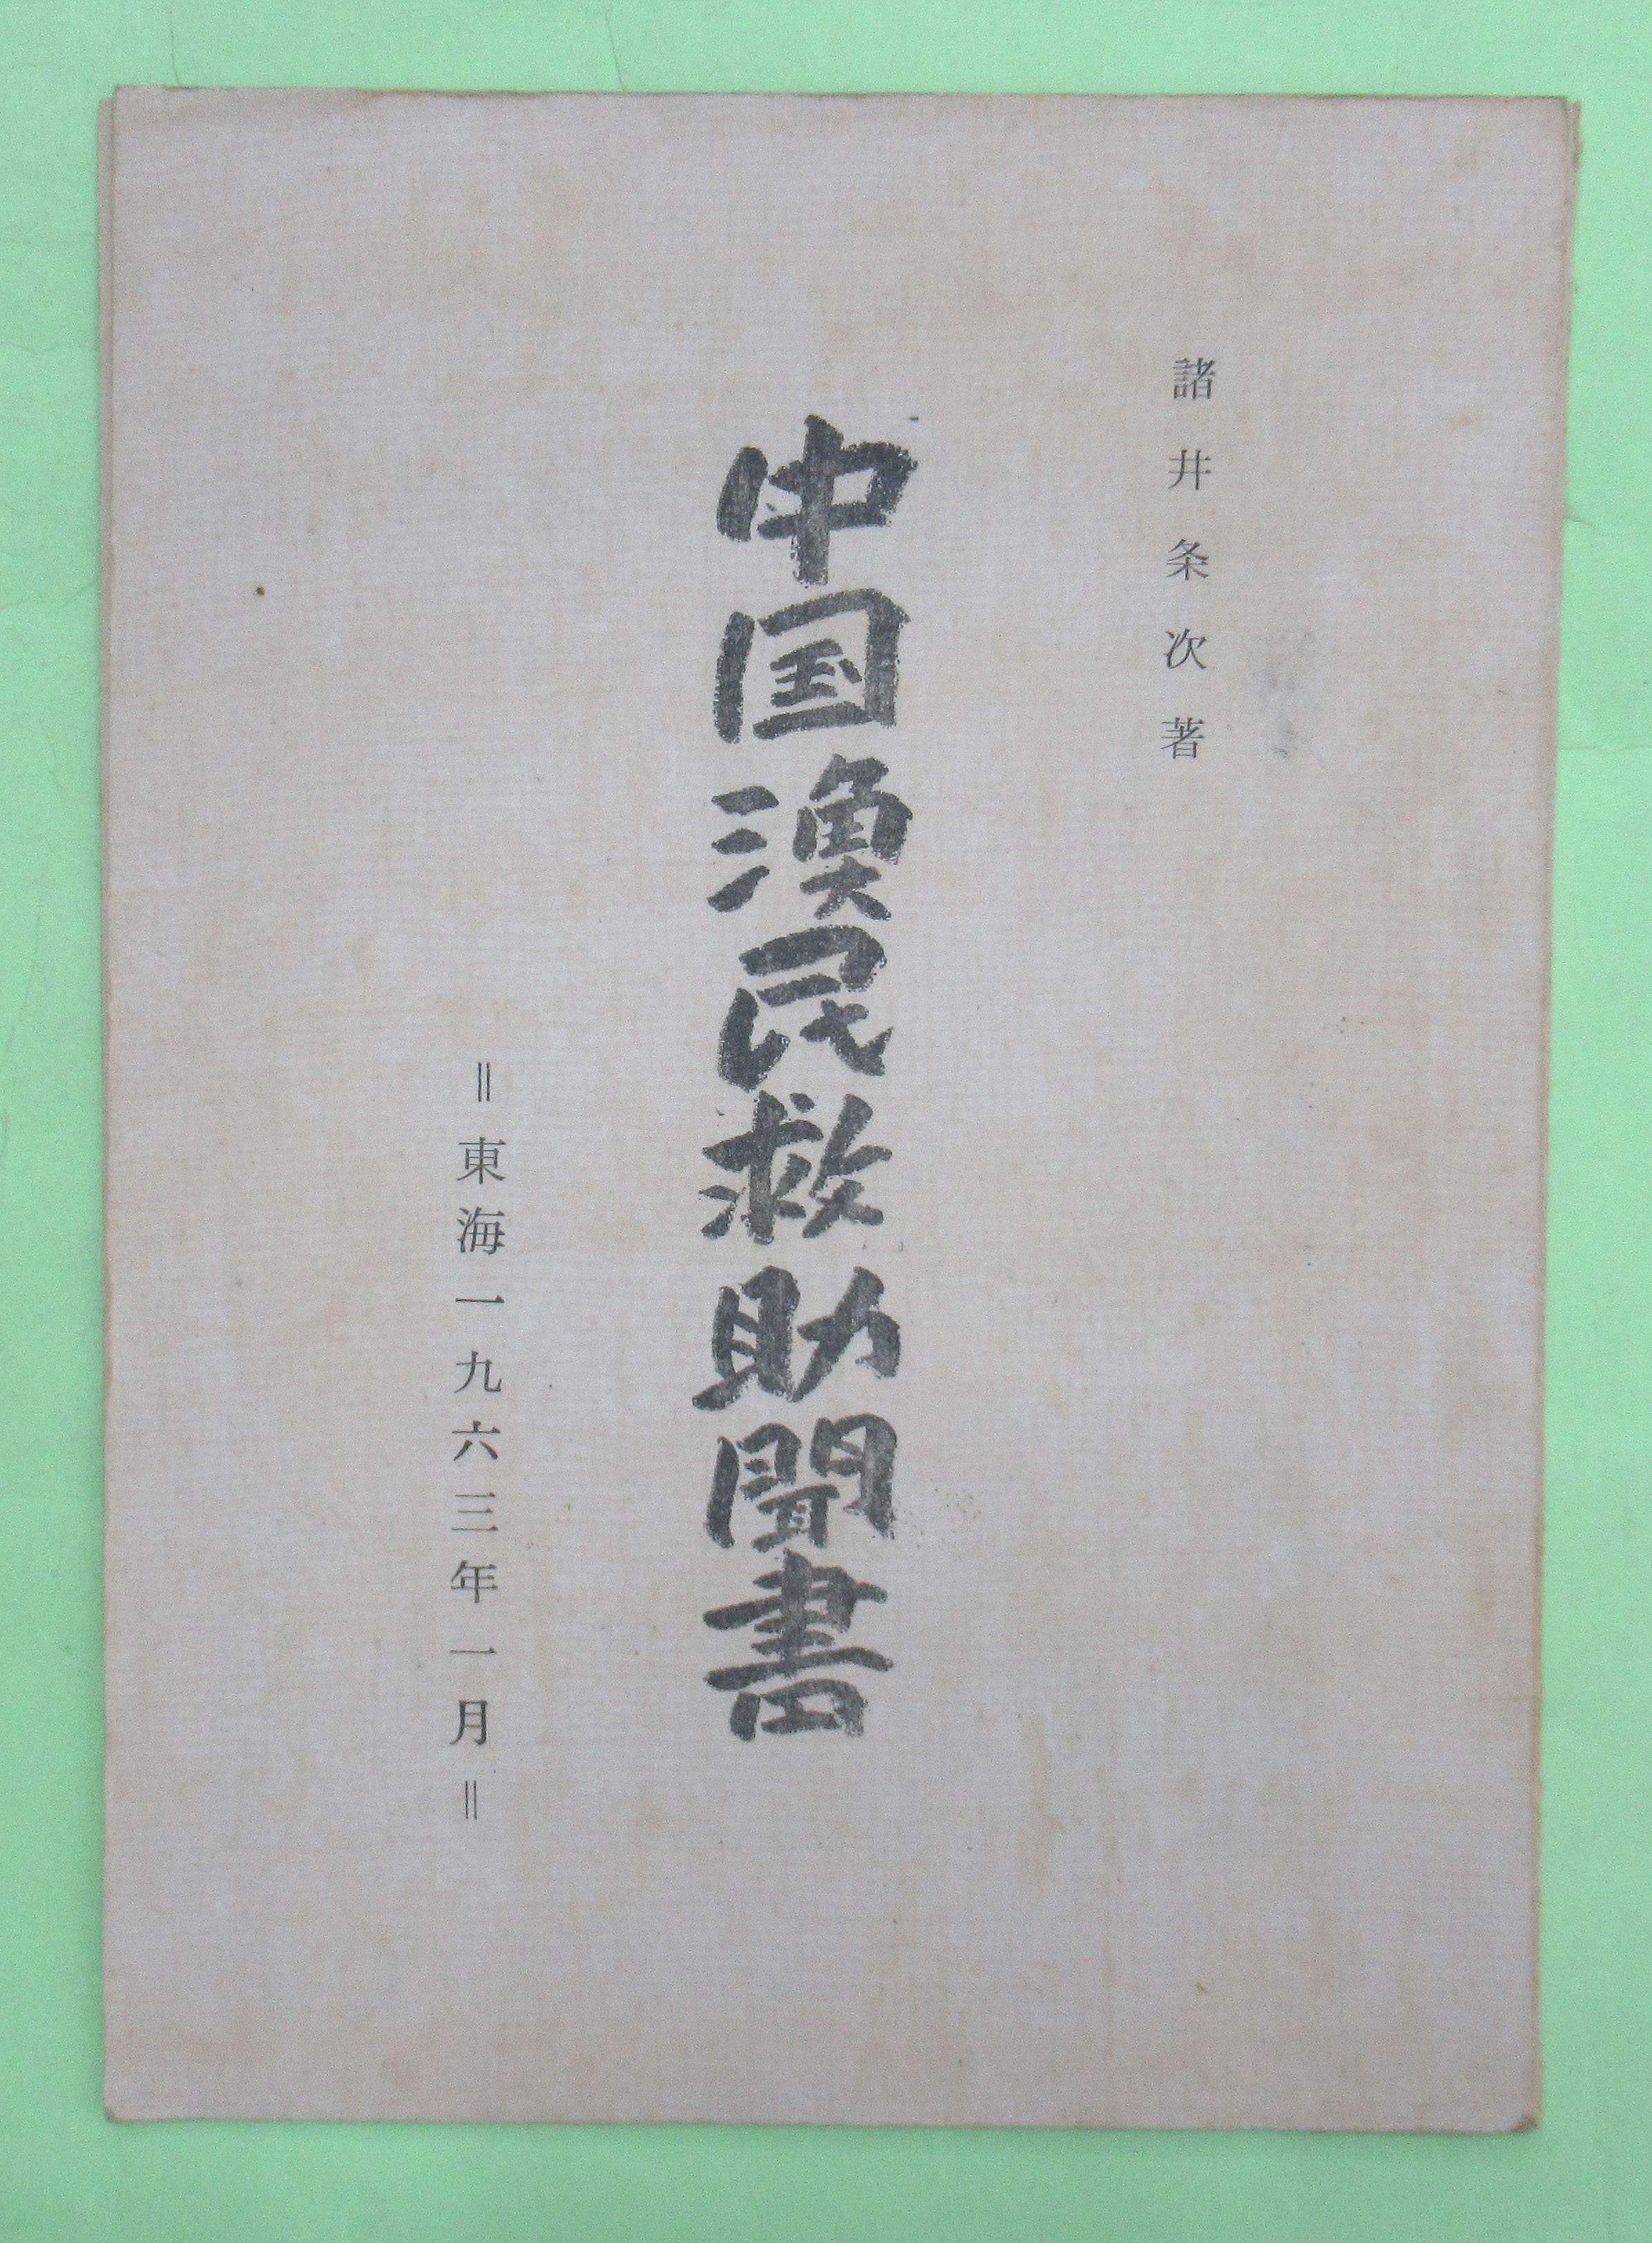 諸井条次著
中国漁民救助聞書
＝東海一九六三年一月＝